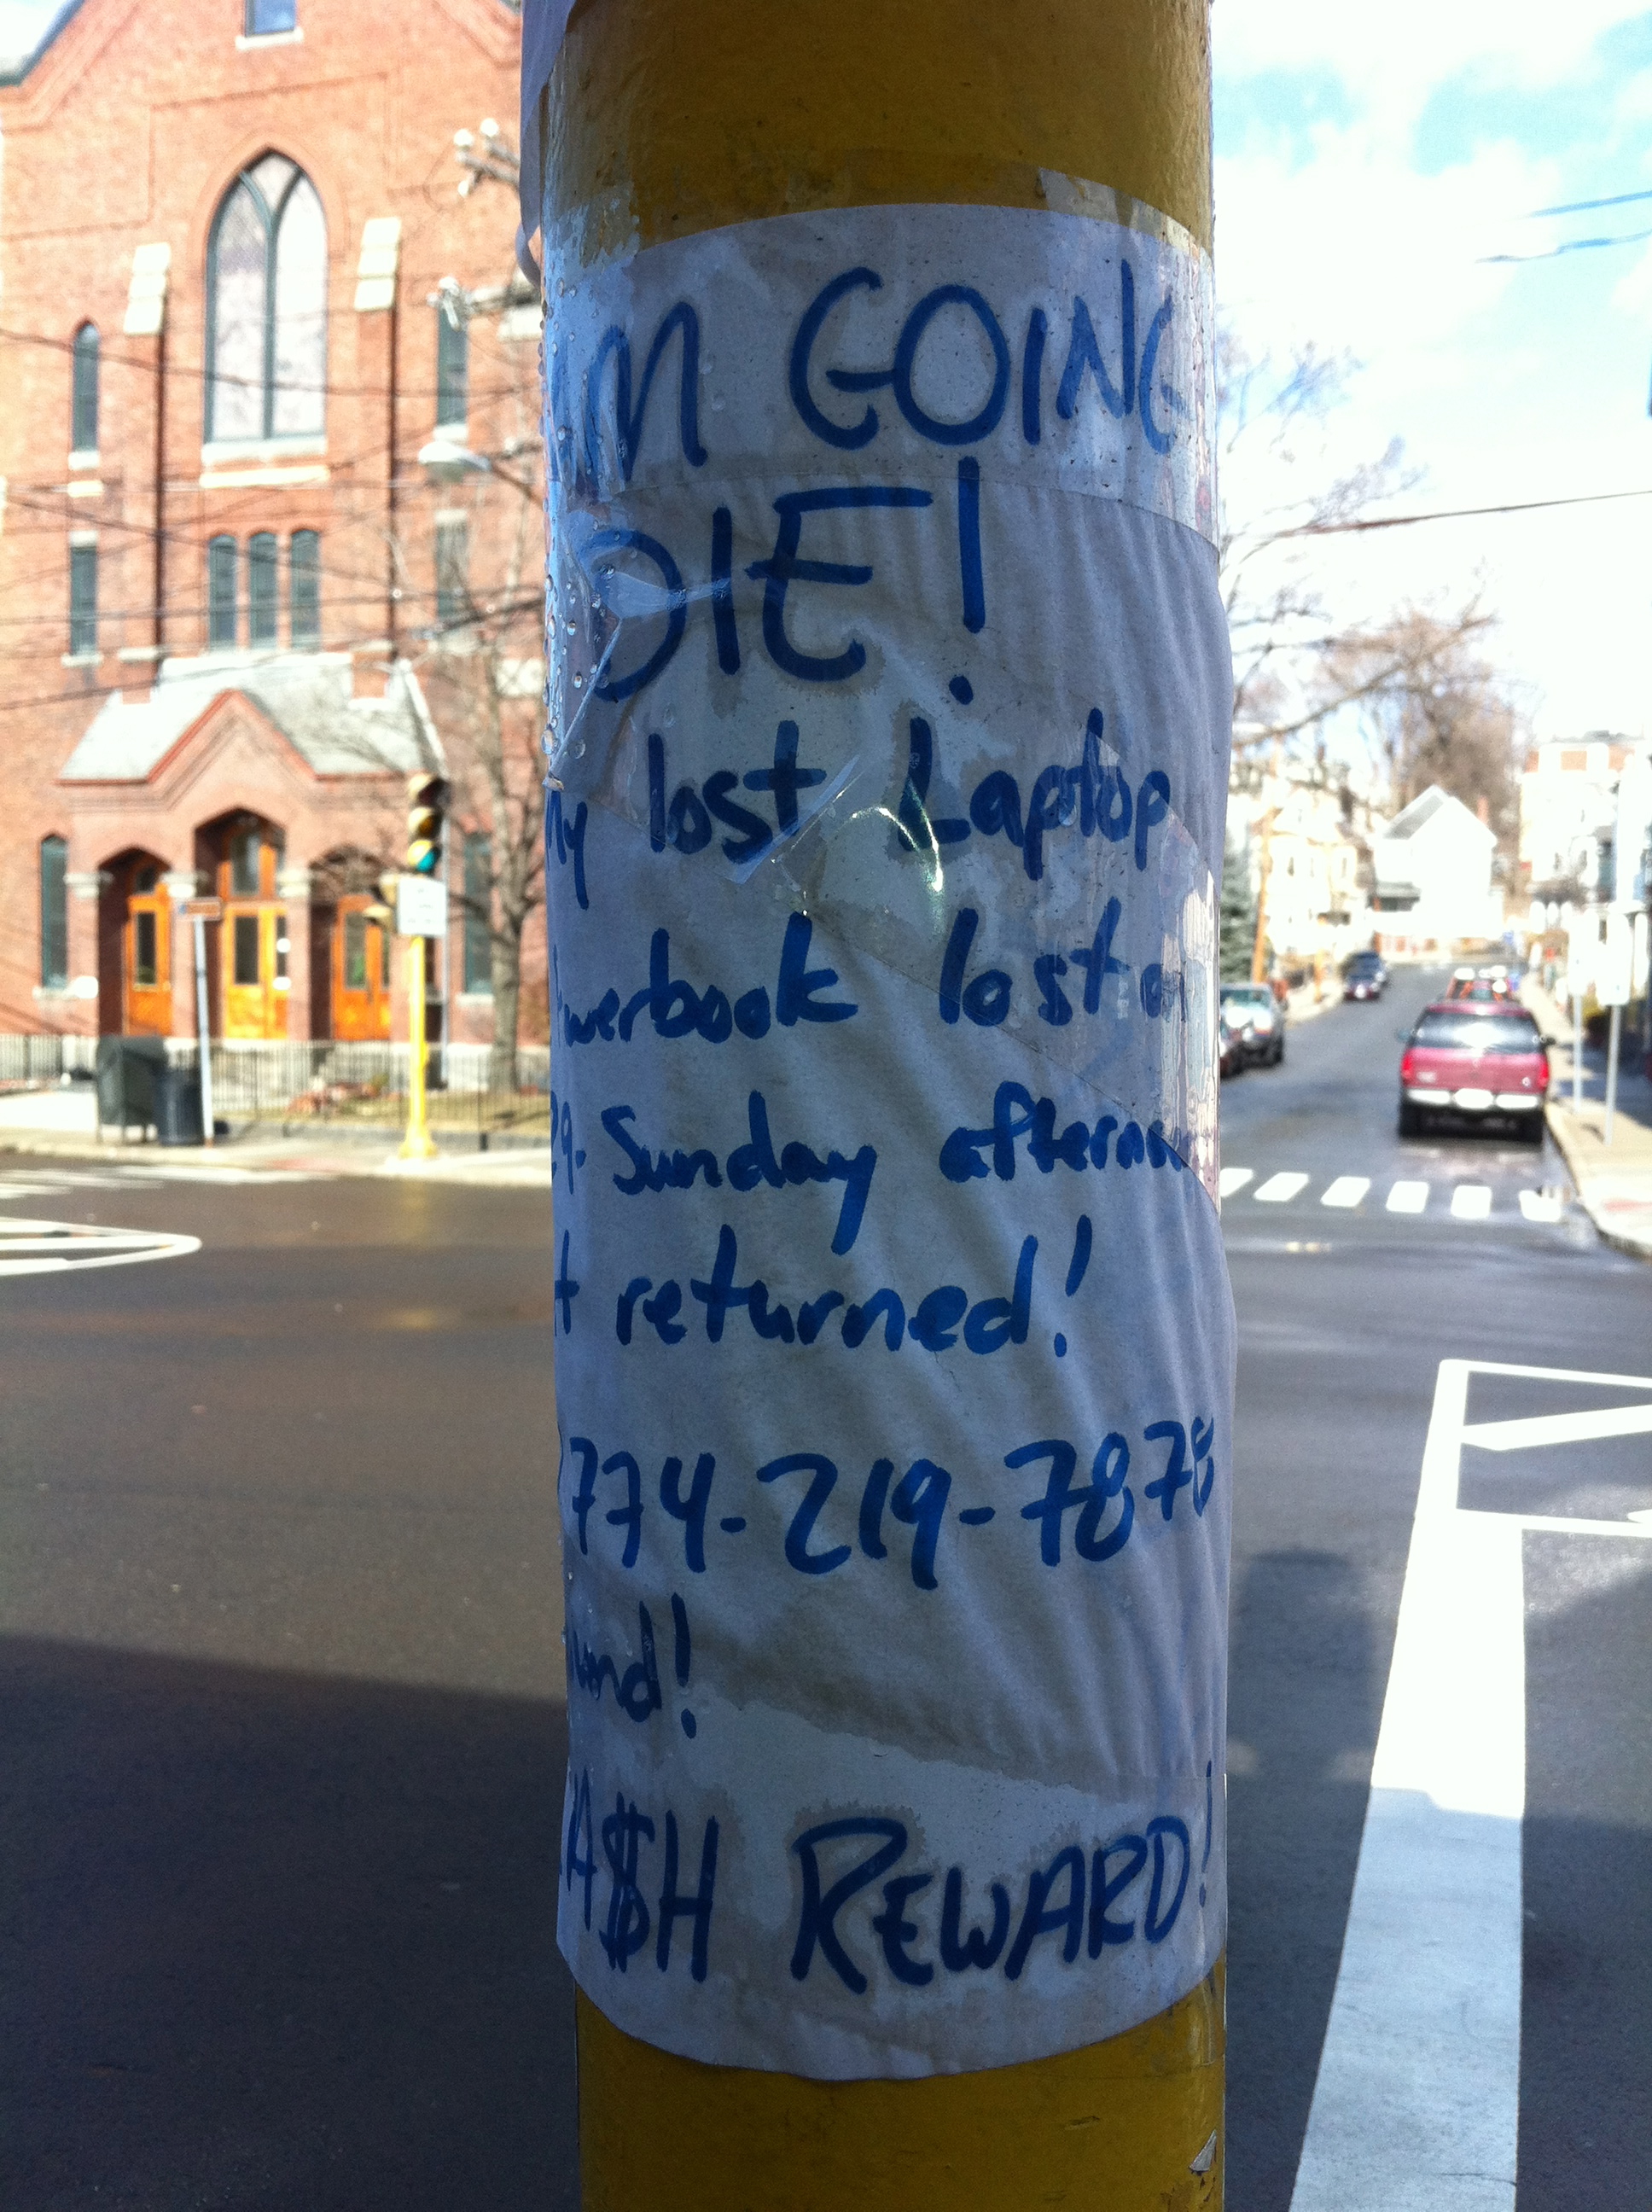 I'M GOING
DIE!
My lost Laptop
Powerbook lost on
29- Sunday afternoon
returned!
774-219-7878
CA$H REWARD!